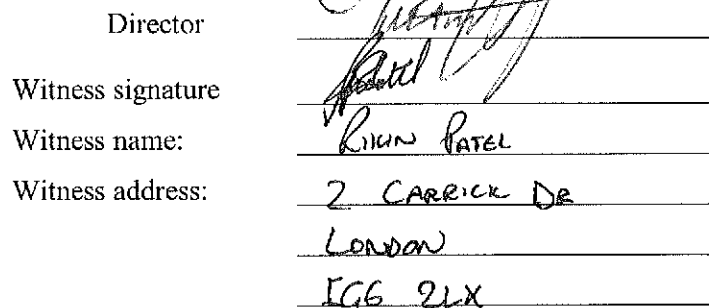 Director
Witness signature
Witness name: RIKIN PATEL
Witness address: 2 CARRICK DR
LONDON
IG6 2LX